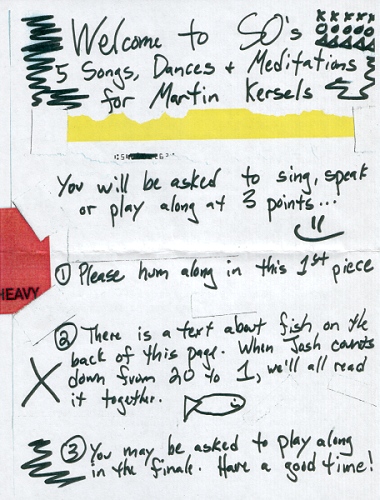 Welcome to SO's
5 Songs, Dances + Meditations
for Martin Kersels
You will be asked to sing, speak
or play along at 3 points...
① Please hum along in this 1st piece
HEAVY
② There is a text about fish, on the
back of this page. When Josh counts
down from 20 to 1, we'll all read
it together.
③ You may be asked to play along
in the finale. Have a good time!